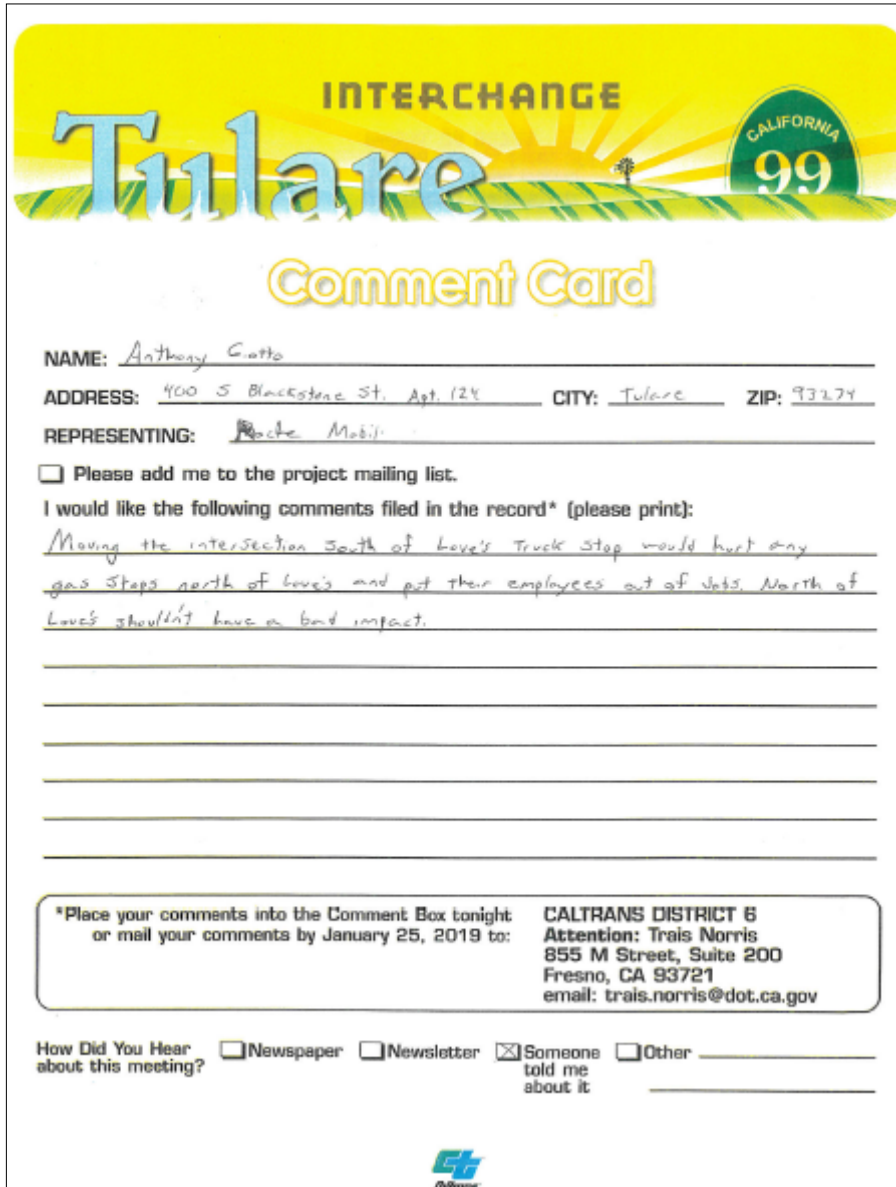 INTERCHANGE
Tulare
CALIFORNIA
99
Comment Card
NAME: Anthony
ADDRESS: 400 S Blackstone St. Apt. 124 CITY: Tulare ZIP: 93274
REPRESENTING: Mobil
Please add me to the project mailing list.
I would like the following comments filed in the record* (please print):
Moving the intersection south of Love's Truck Stop would hurt any
gas stops north of Love's and put their employees out of jobs. North of
Love's shouldn't have a bad impact.
*Place your comments into the Comment Box tonight
or mail your comments by January 25, 2019 to:
CALTRANS DISTRICT 6
Attention: Trais Norris
855 M Street, Suite 200
Fresno, CA 93721
email: trais.norris@dot.ca.gov
How Did You Hear
about this meeting?
Newspaper Newsletter Someone
told me
about it
Other
Ct
Caltrans